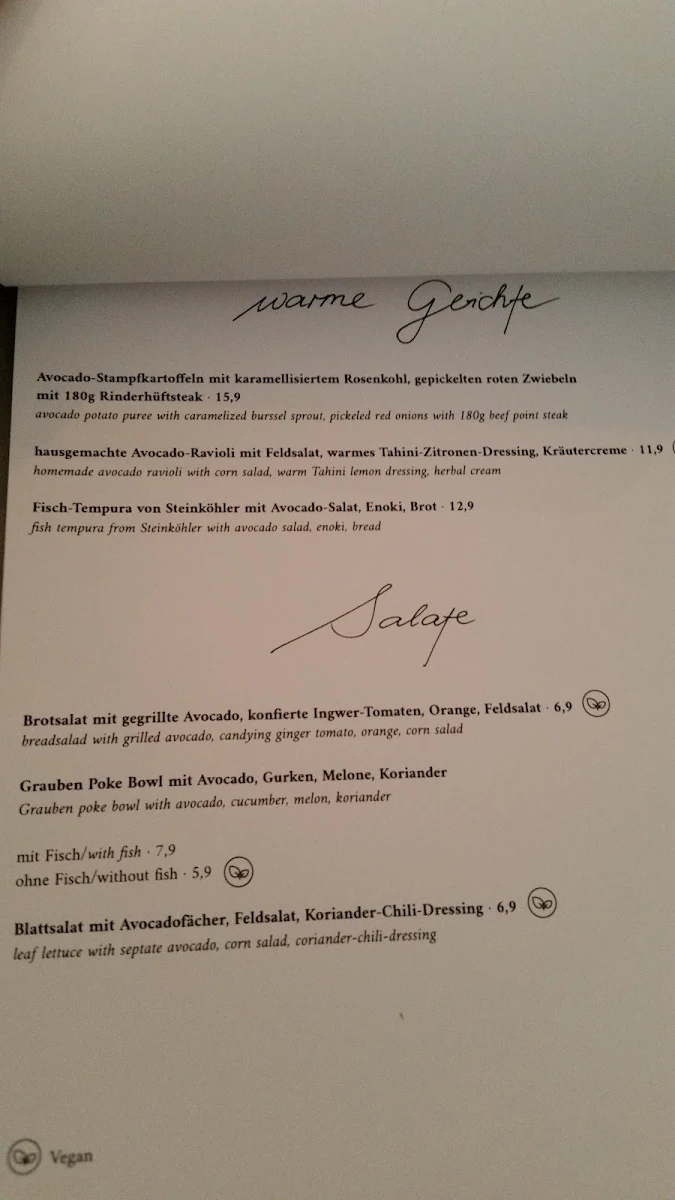 warme Gerichte
Avocado-Stampfkartoffeln mit karamellisiertem Rosenkohl, gepickelten roten Zwiebeln
mit 180g Rinderhüftsteak · 15,9
avocado potato puree with caramelized burssel sprout, pickeled red onions with 180g beef point steak
hausgemachte Avocado-Ravioli mit Feldsalat, warmes Tahini-Zitronen-Dressing, Kräutercreme · 11,9
homemade avocado ravioli with corn salad, warm Tahini lemon dressing, herbal cream
Fisch-Tempura von Steinköhler mit Avocado-Salat, Enoki, Brot · 12,9
fish tempura from Steinköhler with avocado salad, enoki, bread
Salate
Brotsalat mit gegrillte Avocado, konfierte Ingwer-Tomaten, Orange, Feldsalat · 6,9
breadsalad with grilled avocado, candying ginger tomato, orange, corn salad
Grauben Poke Bowl mit Avocado, Gurken, Melone, Koriander
Grauben poke bowl with avocado, cucumber, melon, koriander
mit Fisch/with fish · 7,9
ohne Fisch/without fish · 5,9
Blattsalat mit Avocadofächer, Feldsalat, Koriander-Chili-Dressing · 6,9
leaf lettuce with septate avocado, corn salad, coriander-chili-dressing
Vegan